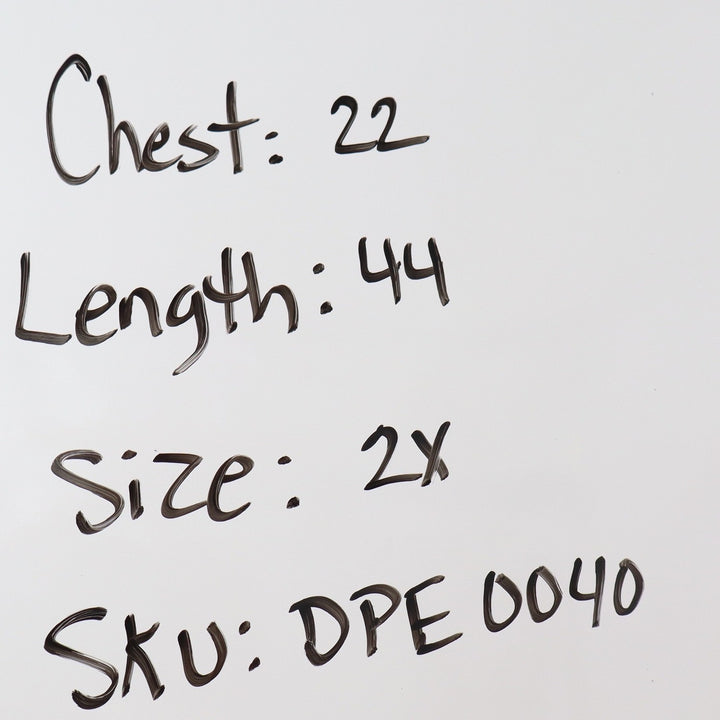 Chest: 22
Length: 44
Size: 2X
Sku: DPE 0040